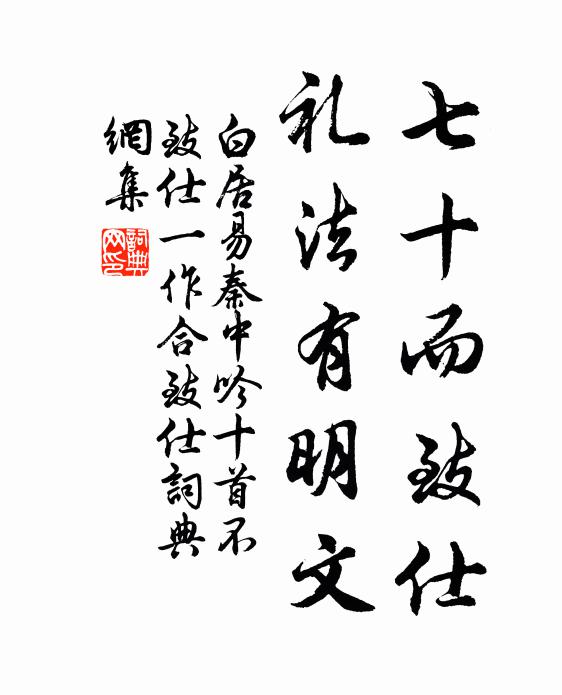 七十而致仕
礼法有明文
白居易秦中吟十首不
致仕一作合致仕詞典
網集
詞典
网印